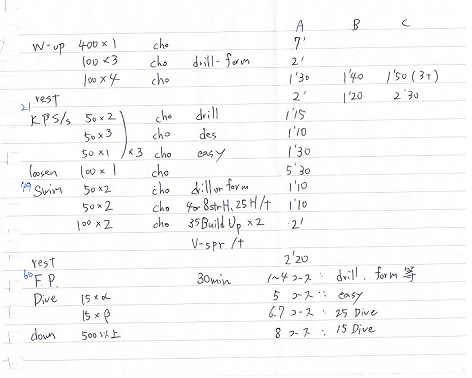 A B C
W-up 400×1 cho 7'
100×3 cho drill-form 2'
100×4 cho 1'30 1'40 1'50 (3t)
rest 2' 1'20 2'30
21 KPS/s 50×2 cho drill 1'15
50×3 cho des 1'10
50×1 ×3 cho easy 1'30
loosen 100×1 cho 5'30
Swim 50×2 cho drill or form 1'10
50×2 cho 4or8strH, 25H/t 1'10
100×2 cho 35 Build Up ×2 2'
V-spr /t
rest 2'20
60 F.P. 30min 1~4コース: drill. form 等
Dive 15×α 5コース: easy
15×β 6.7コース: 25 Dive
down 500以上 8コース: 15 Dive